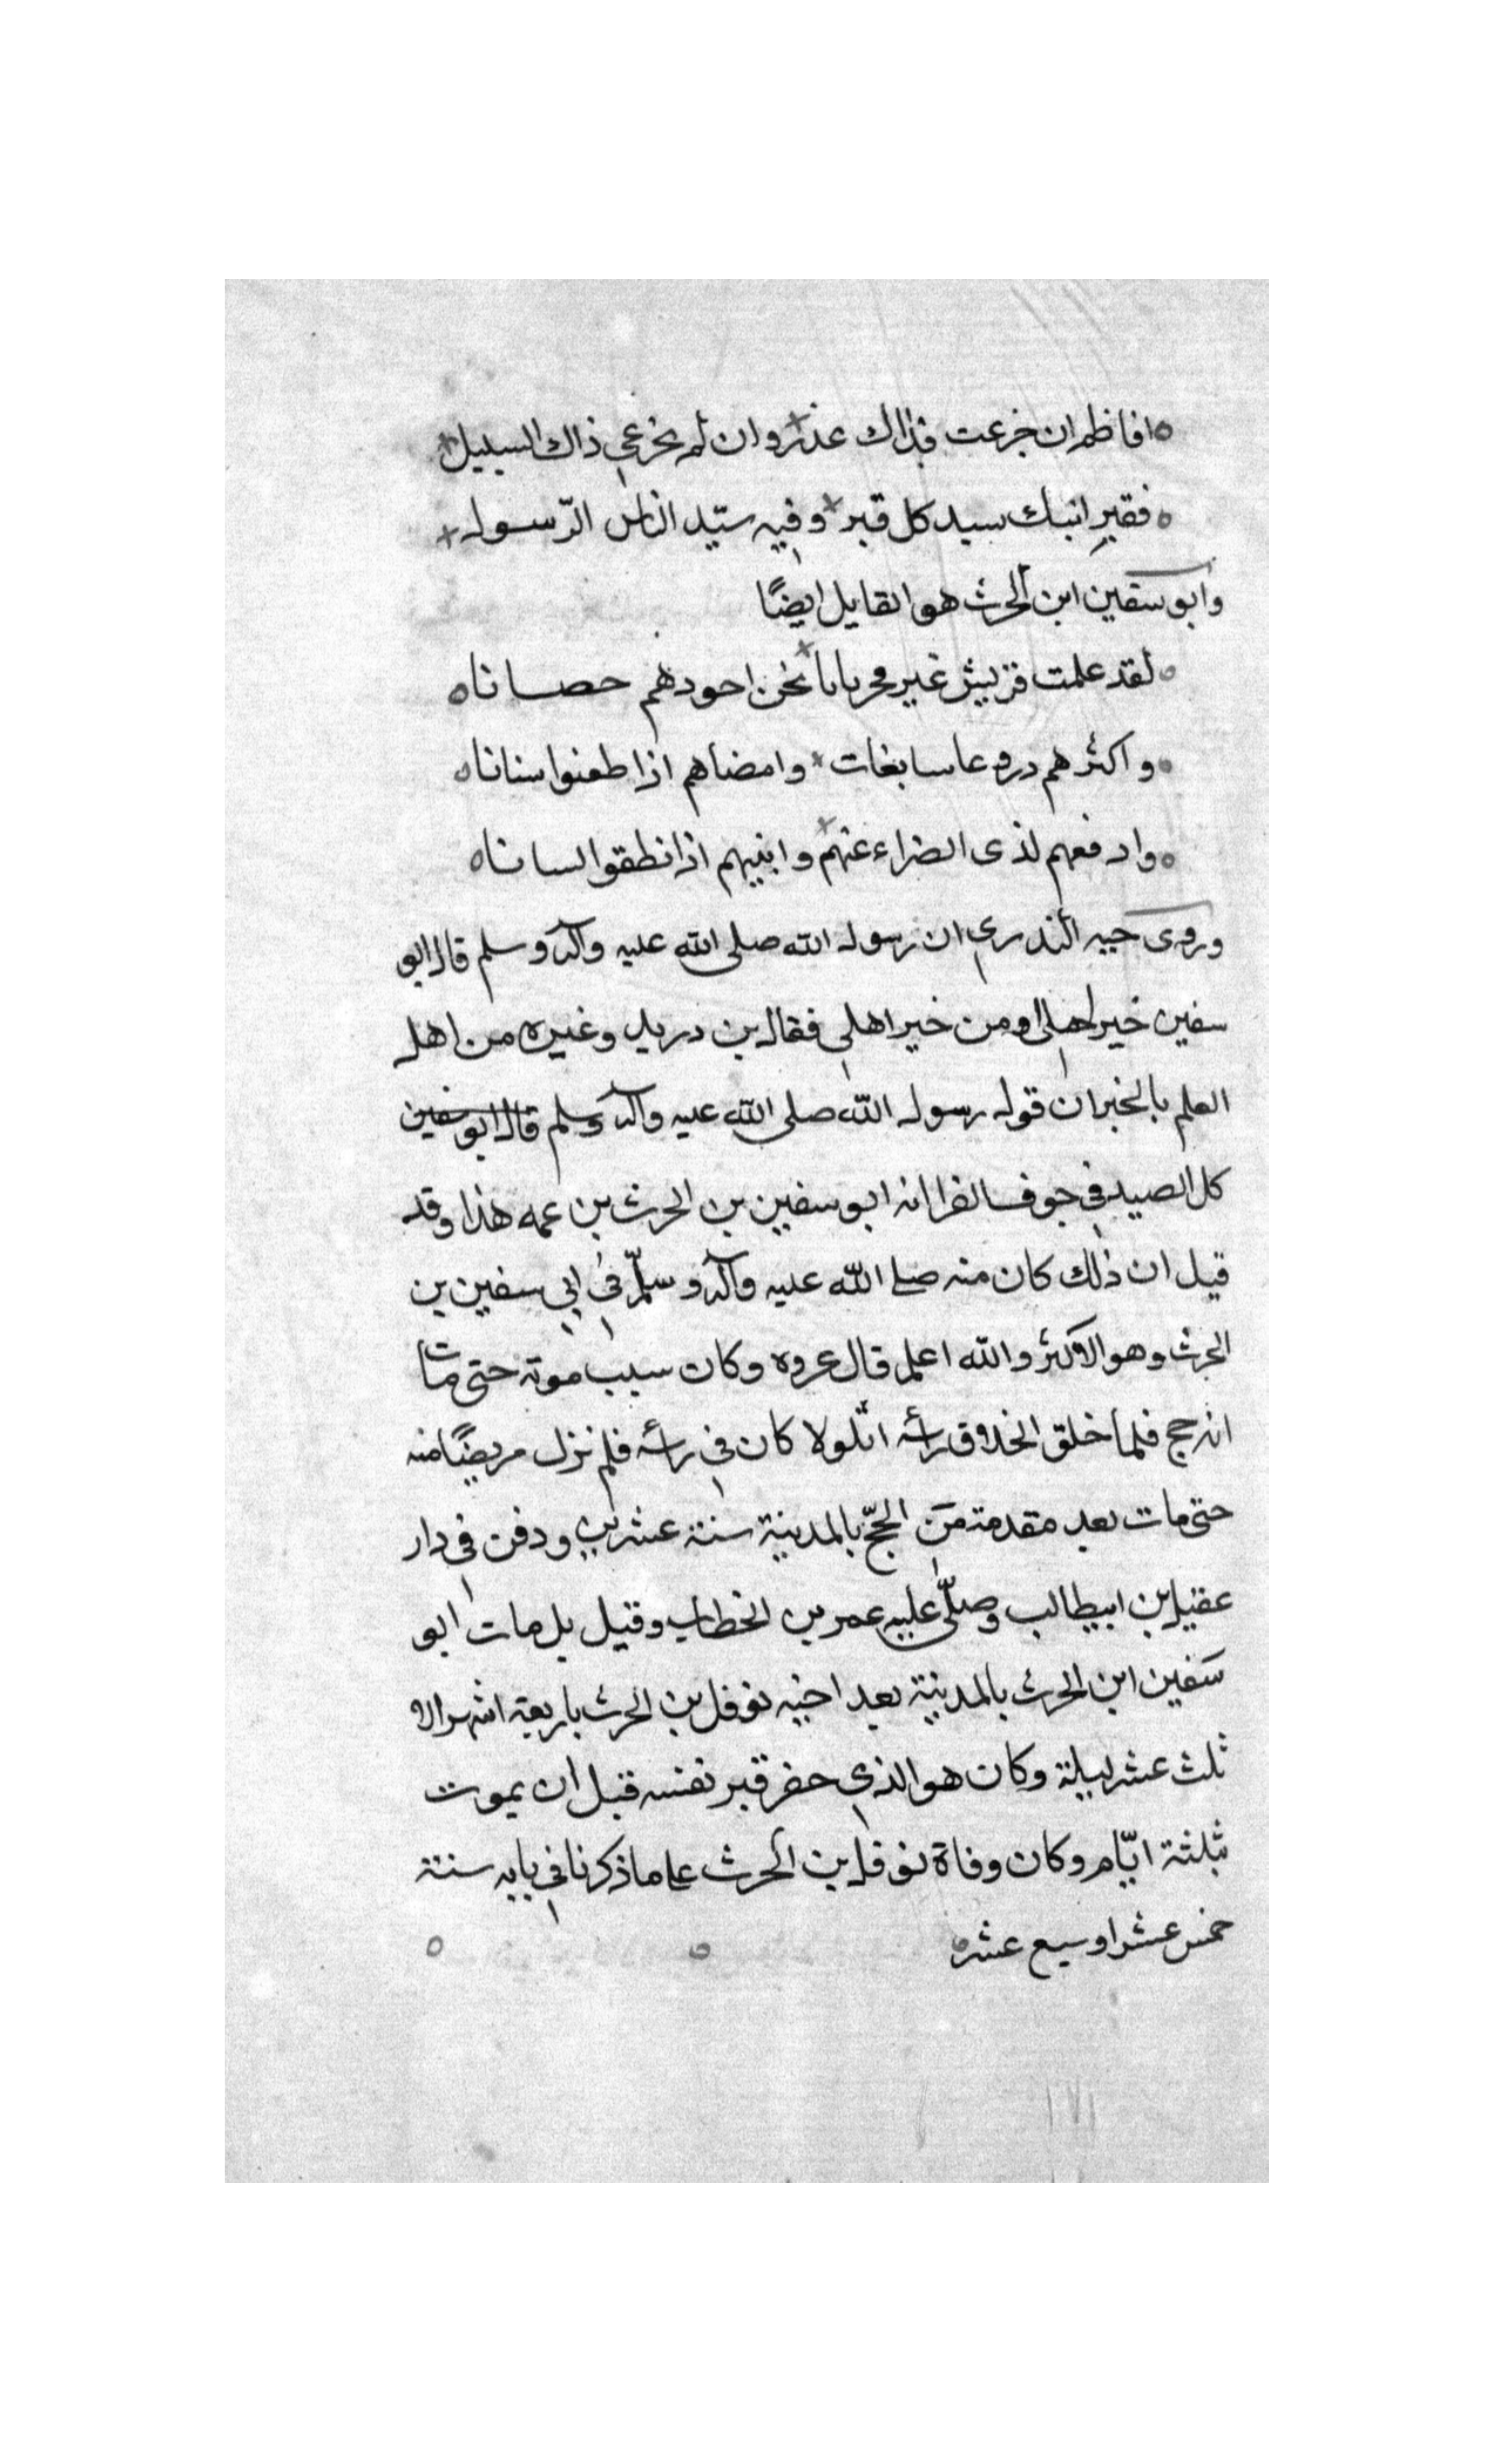 افاظم ان جزعت فذاك عذر وان لم تجزعي ذاك السبيل
فقبر ابيك سيد كل قبر وفيه سيّد الناس الرّسول
وابو سفين ابن الحرث هو القايل ايضًا
لقد علمت قريش غير فخر بانا نحن اجودهم حصانا
واكثرهم دروعا سابغات وامضاهم اذا طعنوا سنانا
وادفعهم لذى الضراء عنهم وابنيهم اذا نطقوا لسانا
وروى حبه البدري ان رسول الله صلى الله عليه وآله وسلم قال ابو
سفين خير اهلى او من خير اهلي فقال بن دريد وغيره من اهل
العلم بالخبر ان قول رسول الله صلى الله عليه وآله وسلم قال ابو سفين
كل الصيد في جوف الفرا انه ابو سفين بن الحرث بن عمه هذا وقد
قيل ان ذلك كان منه صلى الله عليه وآله وسلّم في ابي سفين بن
الحرث وهو الاكثر والله اعلم قال عروه وكان سبب موته حتى مات
انه حج فلما حلق الحلاق رأسه اثلولا كان في رأسه فلم نزل مريضًا منه
حتى مات بعد مقدمة من الحجّ بالمدينة سنة عشرين ودفن في دار
عقيل بن ابيطالب وصلّى عليه عمر بن الخطاب وقيل بل مات ابو
سفين ابن الحرث بالمدينة بعد اخيه نوفل بن الحرث باربعة اشهر الا
ثلث عشر ليلة وكان هو الذي حفر قبر نفسه قبل ان يموت
بثلثة ايّام وكان وفاة نوفل بن الحرث على ما ذكرنا في بابه سنة
خمس عشر او سبع عشر